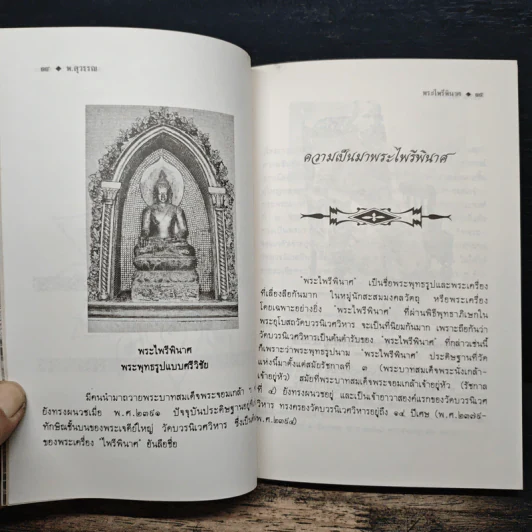 ๑๘ ◆ พ.สุวรรณ
พระไพรีพินาศ
พระพุทธรูปแบบศรีวิชัย
มีคนนำมาถวายพระบาทสมเด็จพระจอมเกล้า
ยังทรงผนวชเมื่อ พ.ศ.๒๓๙๑ ปัจจุบันประดิษฐานอยู่ที่
ทักษิณชั้นบนของพระเจดีย์ใหญ่ วัดบวรนิเวศวิหาร ซึ่งเป็น
ของพระเครื่อง "ไพรีพินาศ" อันลือชื่อ
พระไพรีพินาศ ◆ ๑๙
ความเป็นมาพระไพรีพินาศ
"พระไพรีพินาศ" เป็นชื่อพระพุทธรูปและพระเครื่อง
ที่เลื่องลือกันมาก ในหมู่นักสะสมมงคลวัตถุ หรือพระเครื่อง
โดยเฉพาะอย่างยิ่ง "พระไพรีพินาศ" ที่ผ่านพิธีพุทธาภิเษกใน
พระอุโบสถวัดบวรนิเวศวิหาร จะเป็นที่นิยมกันมาก เพราะถือกันว่า
วัดบวรนิเวศวิหารเป็นต้นตำรับของ "พระไพรีพินาศ" ที่กล่าวเช่นนี้
ก็เพราะว่าพระพุทธรูปนาม "พระไพรีพินาศ" ประดิษฐานที่วัด
แห่งนี้มาตั้งแต่สมัยรัชกาลที่ ๓ (พระบาทสมเด็จพระนั่งเกล้า-
เจ้าอยู่หัว) สมัยที่พระบาทสมเด็จพระจอมเกล้าเจ้าอยู่หัว (รัชกาล
ที่ ๔) ยังทรงผนวชอยู่ และเป็นเจ้าอาวาสองค์แรกของวัดบวรนิเวศ
วิหาร ทรงครองวัดบวรนิเวศวิหารอยู่ถึง ๑๔ ปีเศษ (พ.ศ.๒๓๗๙-
พ.ศ.๒๓๙๔)